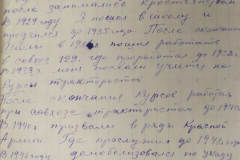 после
В 1929 году Я пошел в школу и
проучился до 1935 года После окончания
школы в пошел работать
в совхоз 129. где проработал до 1938 г.
В 1938 г. меня послали учиться на
Курсы трактористов
После окончания Курсов работал
при совхозе трактористом до 1940
В 1940 г призвали в ряды Красной
Армии Где прослужил до 1946 года
В 1946 году демобилизовался по указу